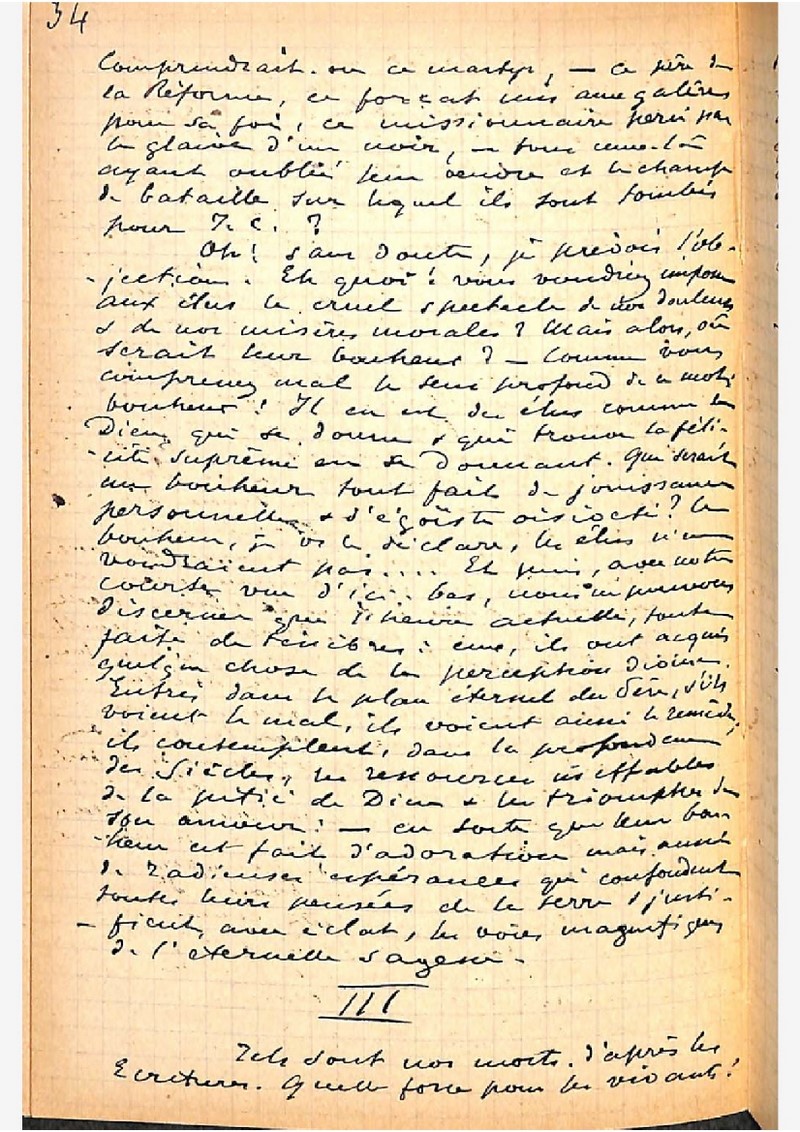 34
Comprendrait-on ce martyr, — ce père de
la Réforme, ce forçat mis aux galères
pour sa foi, ce missionnaire percé par
le glaive d'un noir, — tous ceux-là
ayant oublié leur oeuvre et le champ
de bataille sur lequel ils sont tombés
pour J. C. ?
Oh! sans doute, je prévois l'ob-
-jection. Eh quoi! vous voudriez imposer
aux élus le cruel spectacle de nos douleurs
& de nos misères morales? Mais alors, où
serait leur bonheur? — Comme vous
comprenez mal le sens profond de ce mot:
bonheur! Il en est des élus comme de
Dieu, qui se donne & qui trouve la féli-
-cité suprême en se donnant. Que serait
un bonheur tout fait de jouissance
personnelle & d'égoïste oisiveté? Ce
bonheur, je vs le déclare, les élus n'en
voudraient pas.... Et puis, avec notre
courte vue d'ici-bas, nous ne pouvons
discerner que l'heure actuelle, toute
faite de ténèbres: eux, ils ont acquis
quelque chose de la perception divine.
Entrés dans le plan éternel du Père, s'ils
voient le mal, ils voient aussi le remède;
ils contemplent, dans la profondeur
des Siècles, les ressources ineffables
de la pitié de Dieu & les triomphes de
son amour: — en sorte que leur bon-
-heur est fait d'adoration mais aussi
de radieuses espérances qui confondent
toutes leurs pensées de la terre & justi-
-fient, avec éclat, les voies magnifiques
de l'éternelle sagesse.
III
Tels sont nos morts. d'après les
Ecritures. Quelle force pour les vivants!